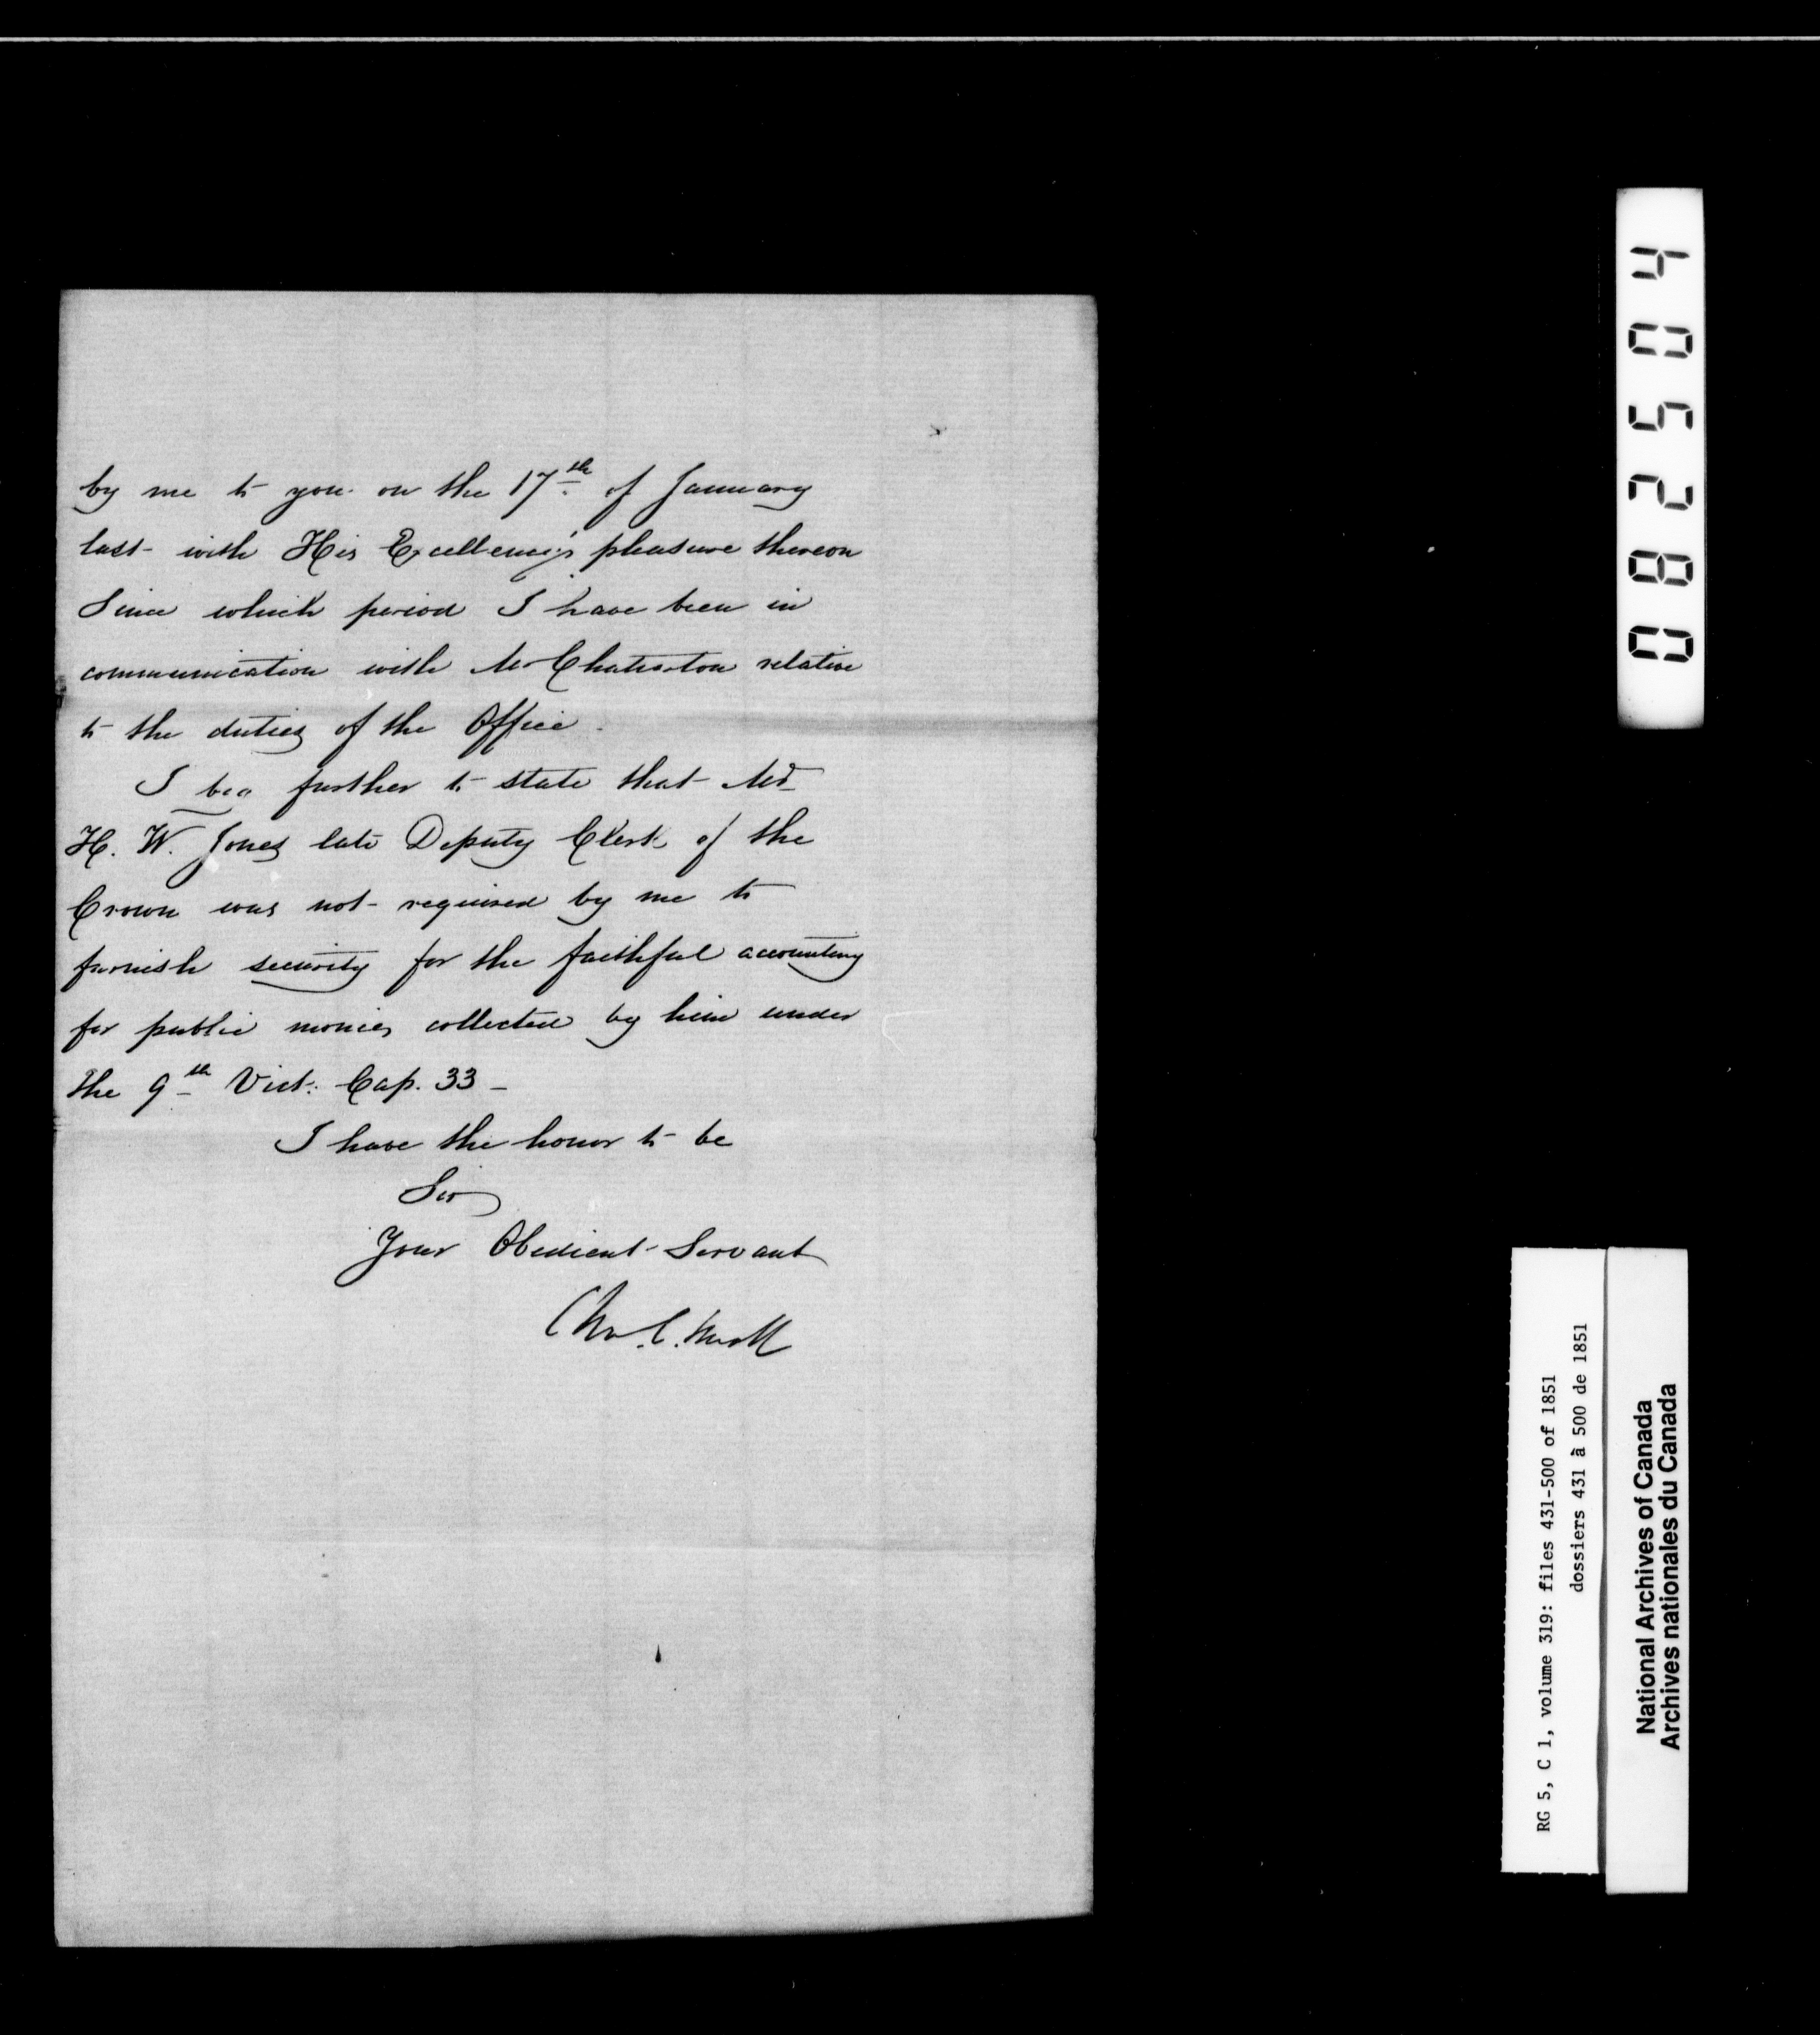 by me to you on the 17th of January
last with His Excellency's pleasure thereon
Since which period I have been in
communication with Mr Chatterton relative
to the duties of the Office.
I beg further to state that Mr
H. W. Jones late Deputy Clerk of the
Crown was not required by me to
furnish security for the faithful accounting
for public monies collected by him under
the 9th Vict: Cap. 33 -
I have the honor to be
Sir
Your Obedient Servant
Chs. C. Small
082504
RG 5, C 1, volume 319: files 431-500 of 1851
dossiers 431 à 500 de 1851
National Archives of Canada
Archives nationales du Canada